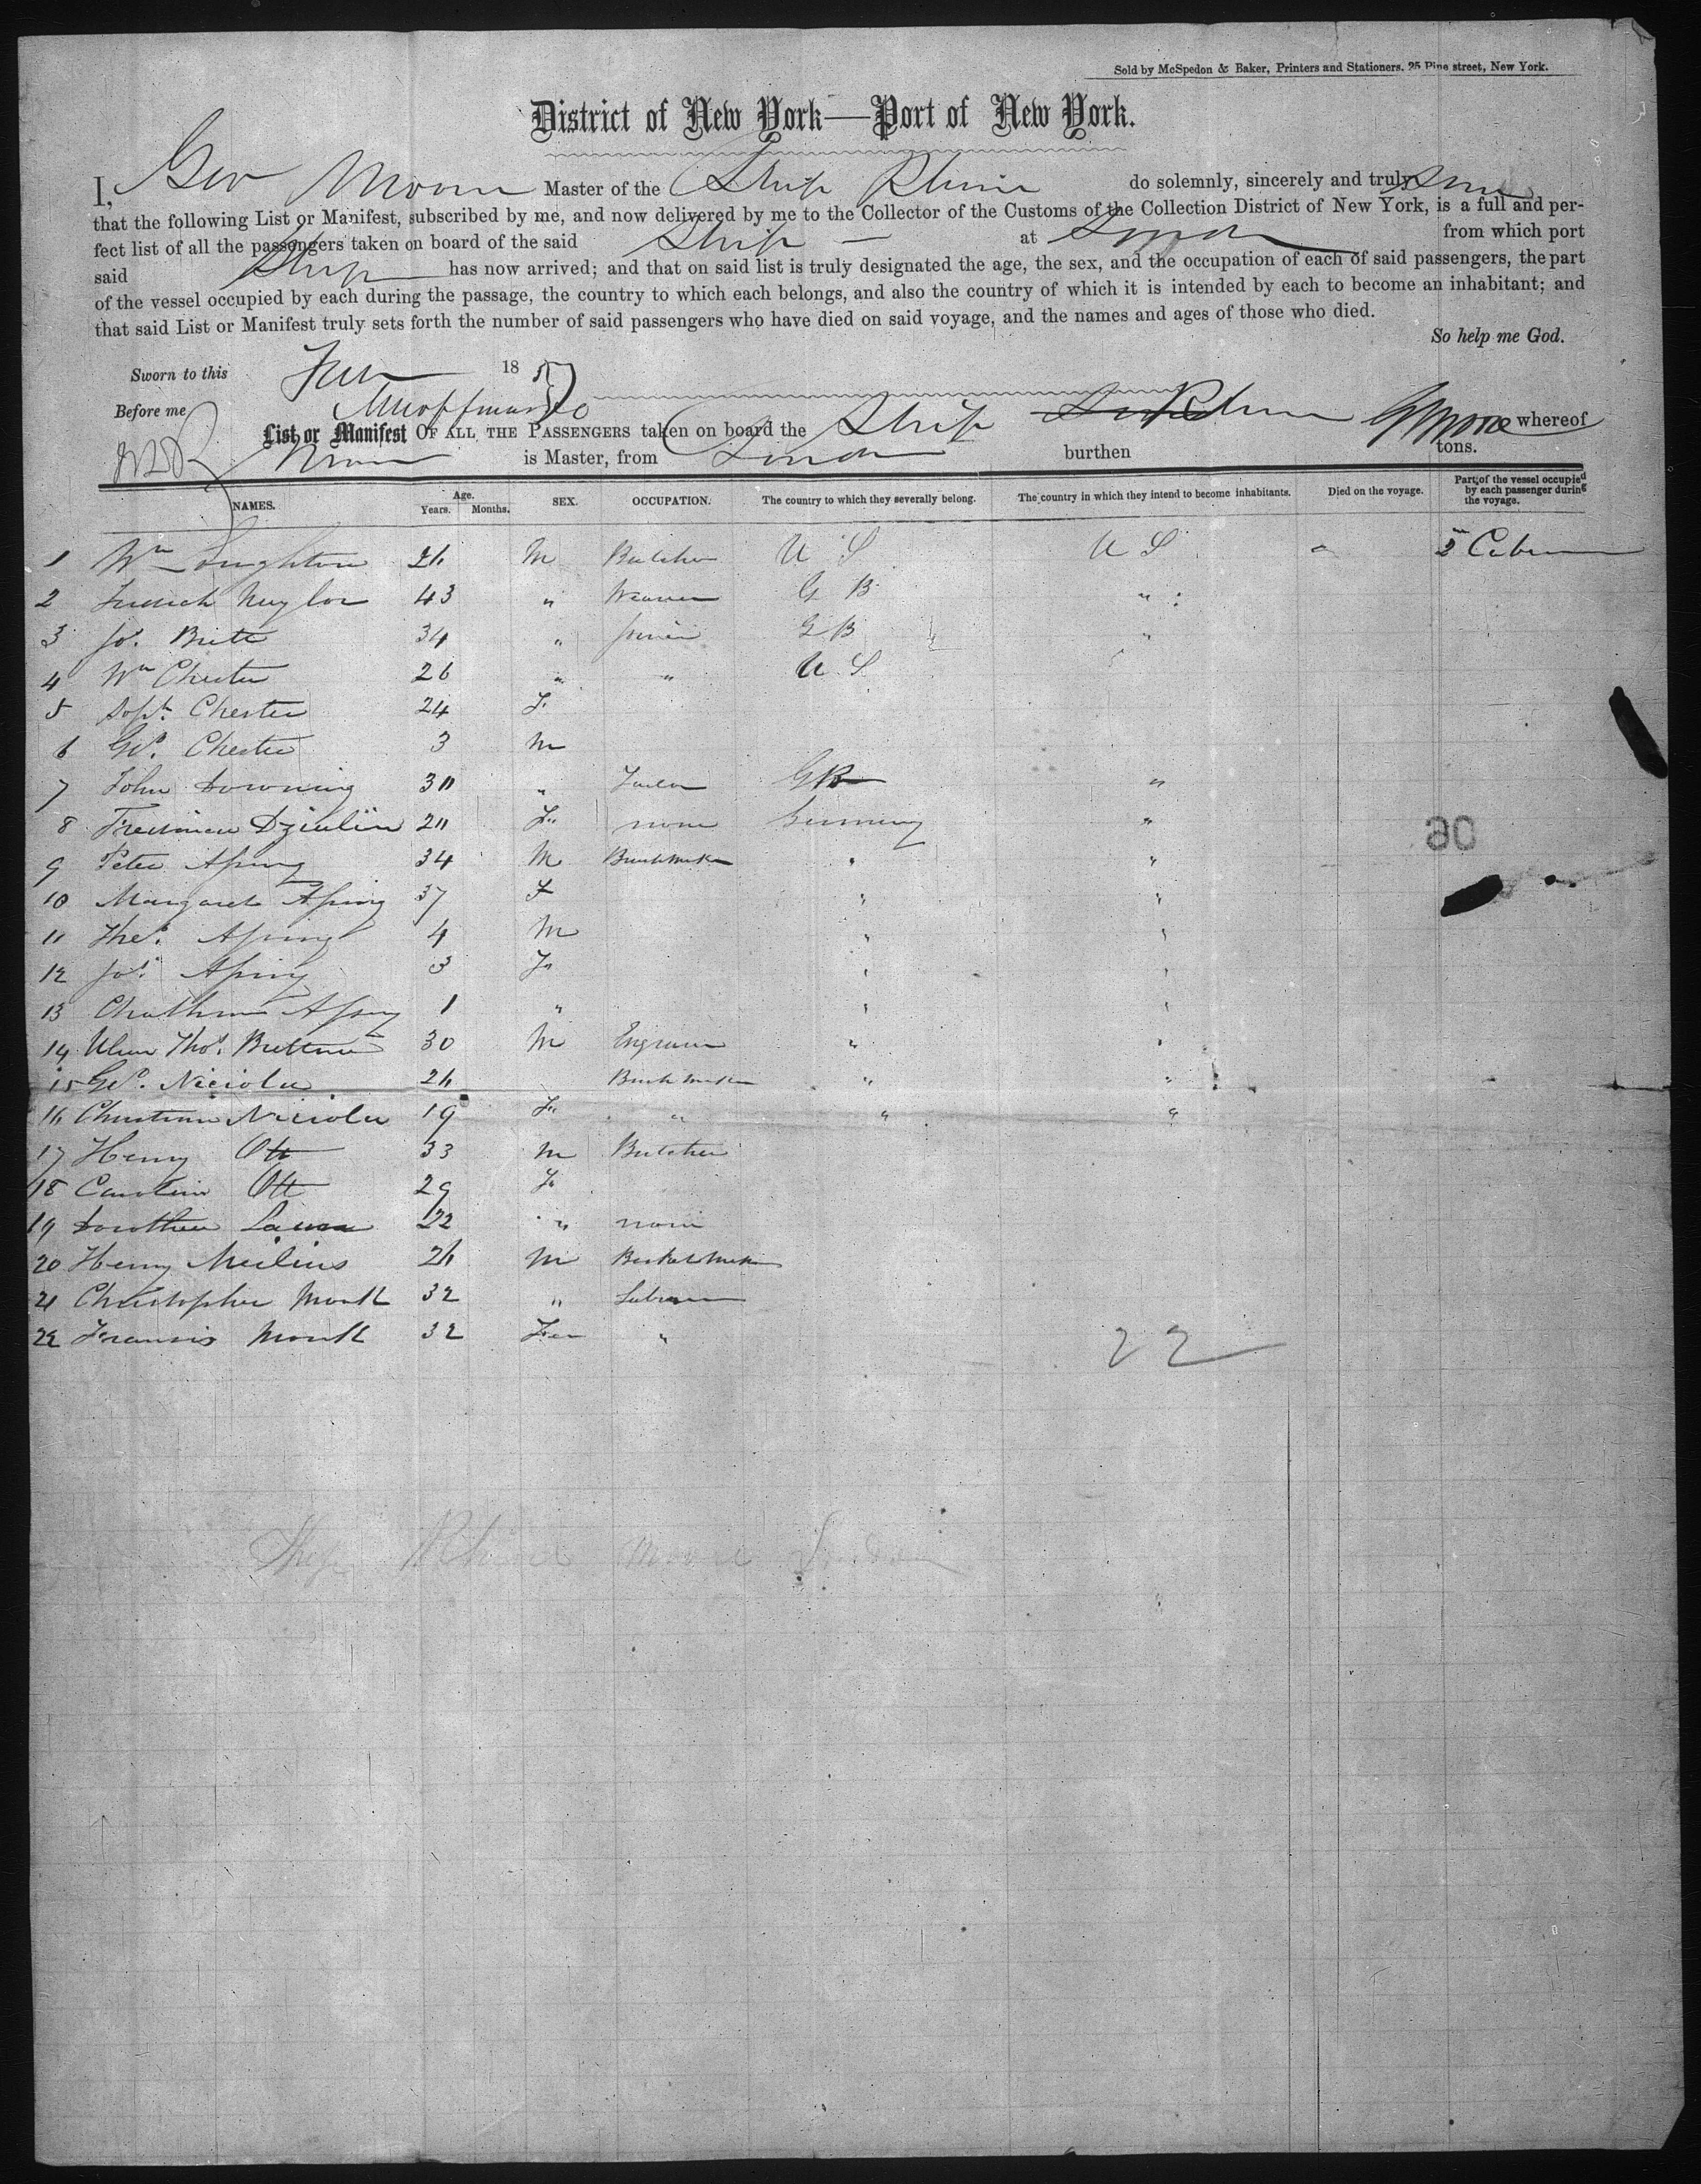 Sold by McSpedon & Baker, Printers and Stationers, 25 Pine street, New York.
District of New York—Port of New York.
I, Geo Moore Master of the Ship Rhine do solemnly, sincerely and truly
that the following List or Manifest, subscribed by me, and now delivered by me to the Collector of the Customs of the Collection District of New York, is a full and per-
fect list of all the passengers taken on board of the said Ship — at London from which port
said Ship has now arrived; and that on said list is truly designated the age, the sex, and the occupation of each of said passengers, the part
of the vessel occupied by each during the passage, the country to which each belongs, and also the country of which it is intended by each to become an inhabitant; and
that said List or Manifest truly sets forth the number of said passengers who have died on said voyage, and the names and ages of those who died.
So help me God.
Sworn to this 18
Before me
List or Manifest OF ALL THE PASSENGERS taken on board the Ship Rhine G Moore whereof
Moore is Master, from London burthen tons.
NAMES. Age. Years. Months. SEX. OCCUPATION. The country to which they severally belong. The country in which they intend to become inhabitants. Died on the voyage. Part of the vessel occupied by each passenger during the voyage.
1 Wm 26 M Butcher U S U S 2 Cabin
2 Naylor 43 " Weaver G B "
3 Jos. Britt 34 " G B "
4 Wm Chester 26 " " U S
5 Soph. Chester 24 F
6 Geo. Chester 3 M
7 John Downing 30 " Tailor G B "
8 20 F none Germany "
9 Peter 34 M " "
10 Margaret 37 F " "
11 4 M " "
12 Jos. 3 F " "
13 1 " " "
14 Thos. 30 M Engraver " "
15 Geo. 26 " "
16 Christian 19 F " " "
17 Henry Ott 33 M Butcher
18 Caroline Ott 29 F
19 Dorothea 22 " none
20 Henry Meilius 26 M Basket Maker
21 Christopher Monk 32 "
22 Francis Monk 32 Fem "
90
22
Ship Rhine Moore London